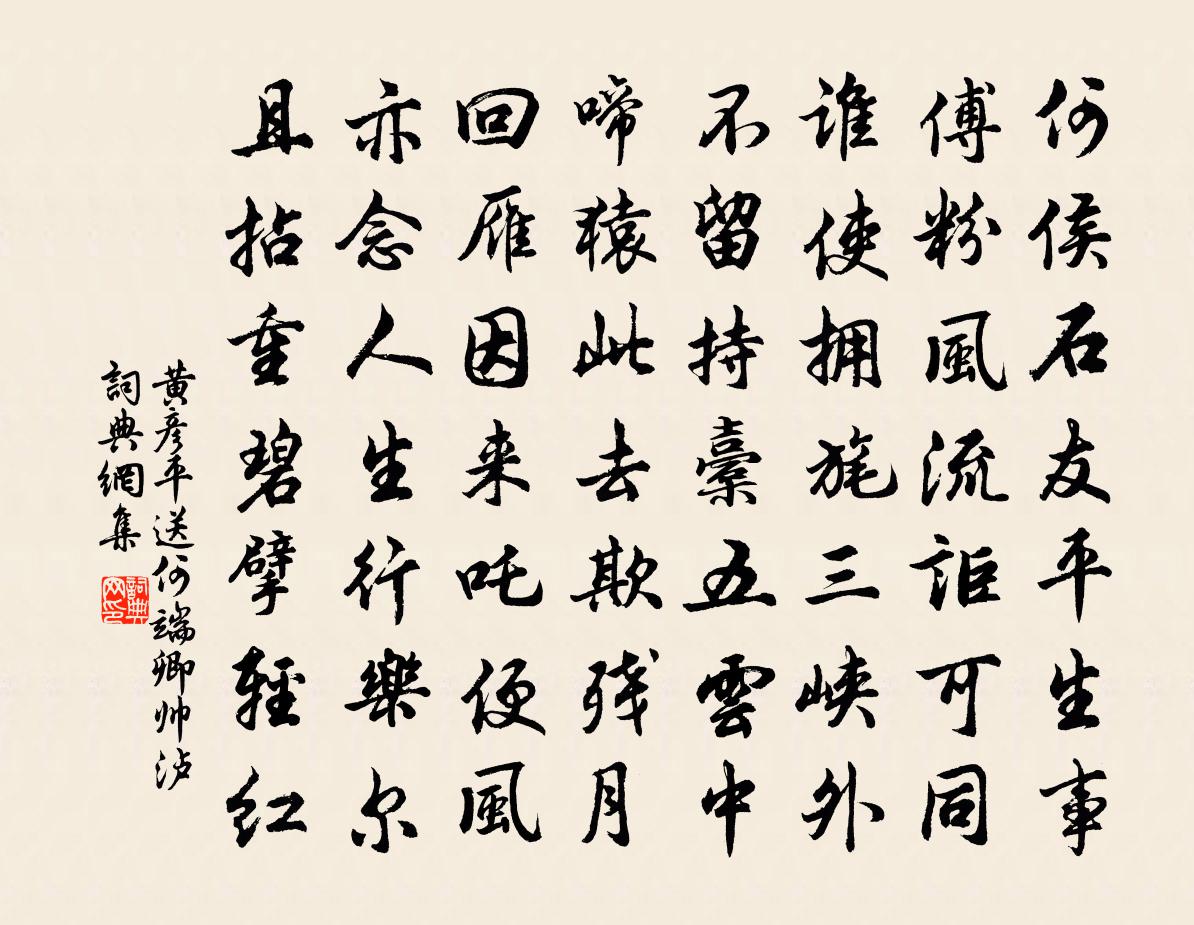 何侯石友平生事
傅粉風流詎可同
誰使拥旄三峡外
不留持橐五雲中
啼猿此去欺残月
回雁因来吒便風
亦念人生行樂尔
且拈重碧擘輕紅
黄彦平送何端卿帅泸
詞典網集
詞典网印